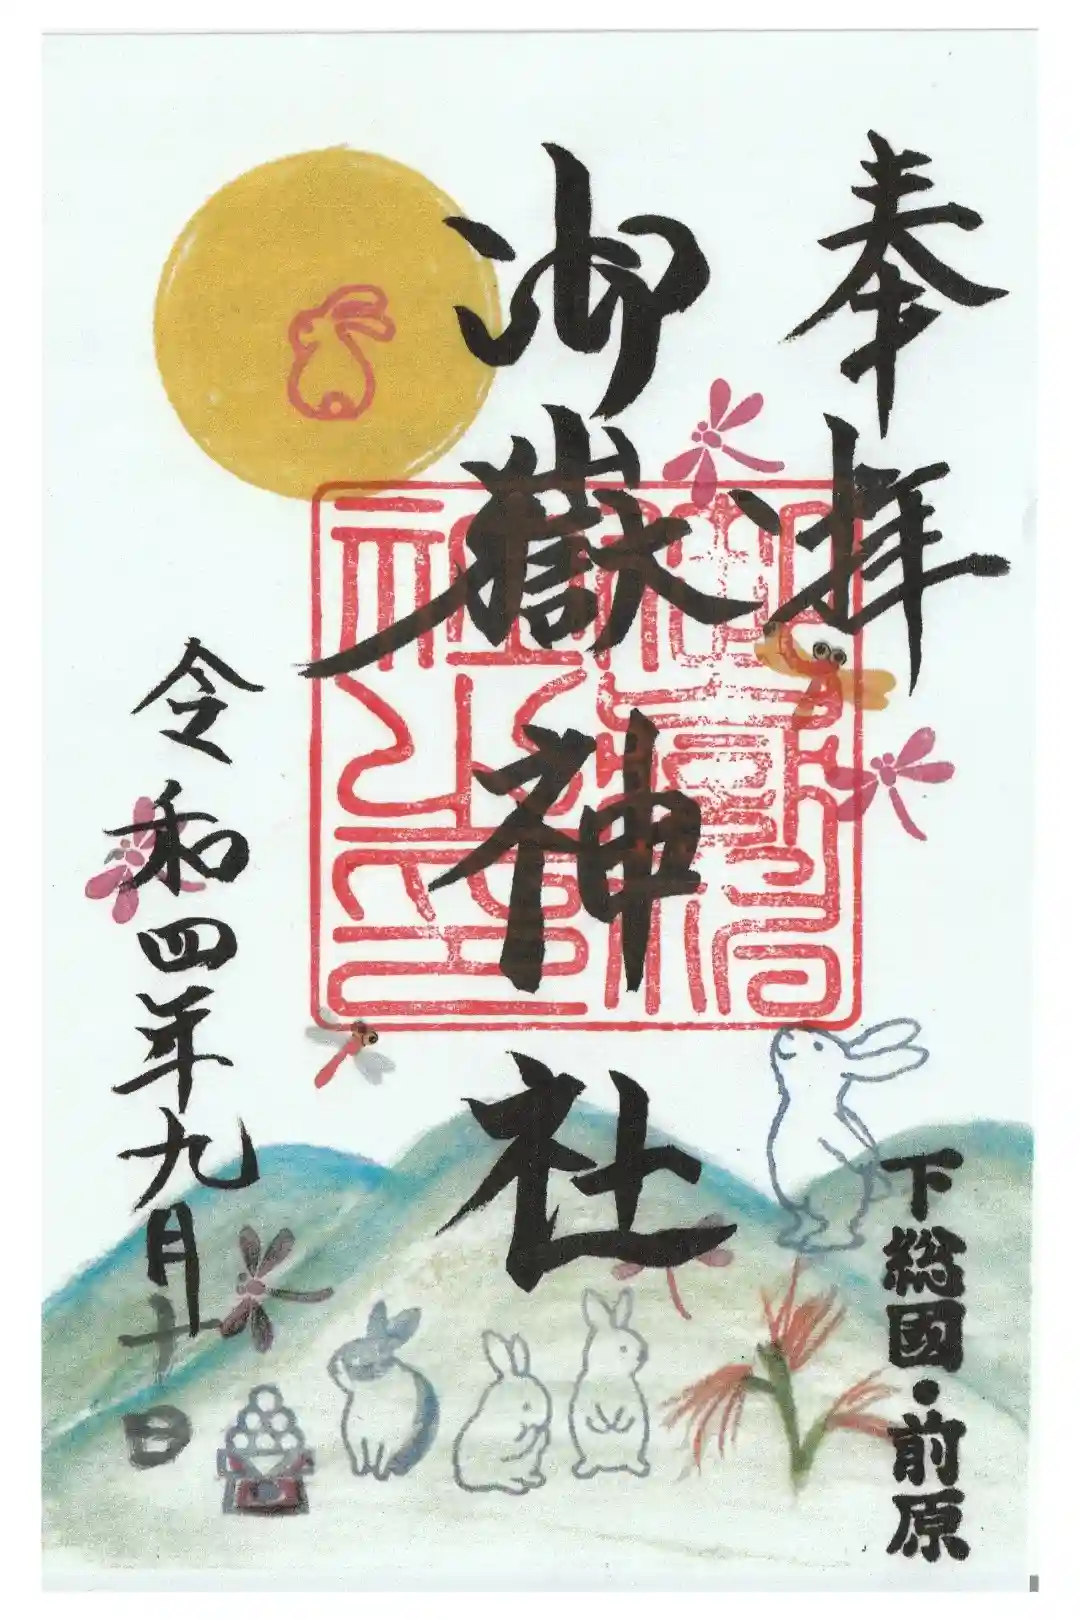 奉拝
下総國・前原
御嶽神社
令和四年九月十日